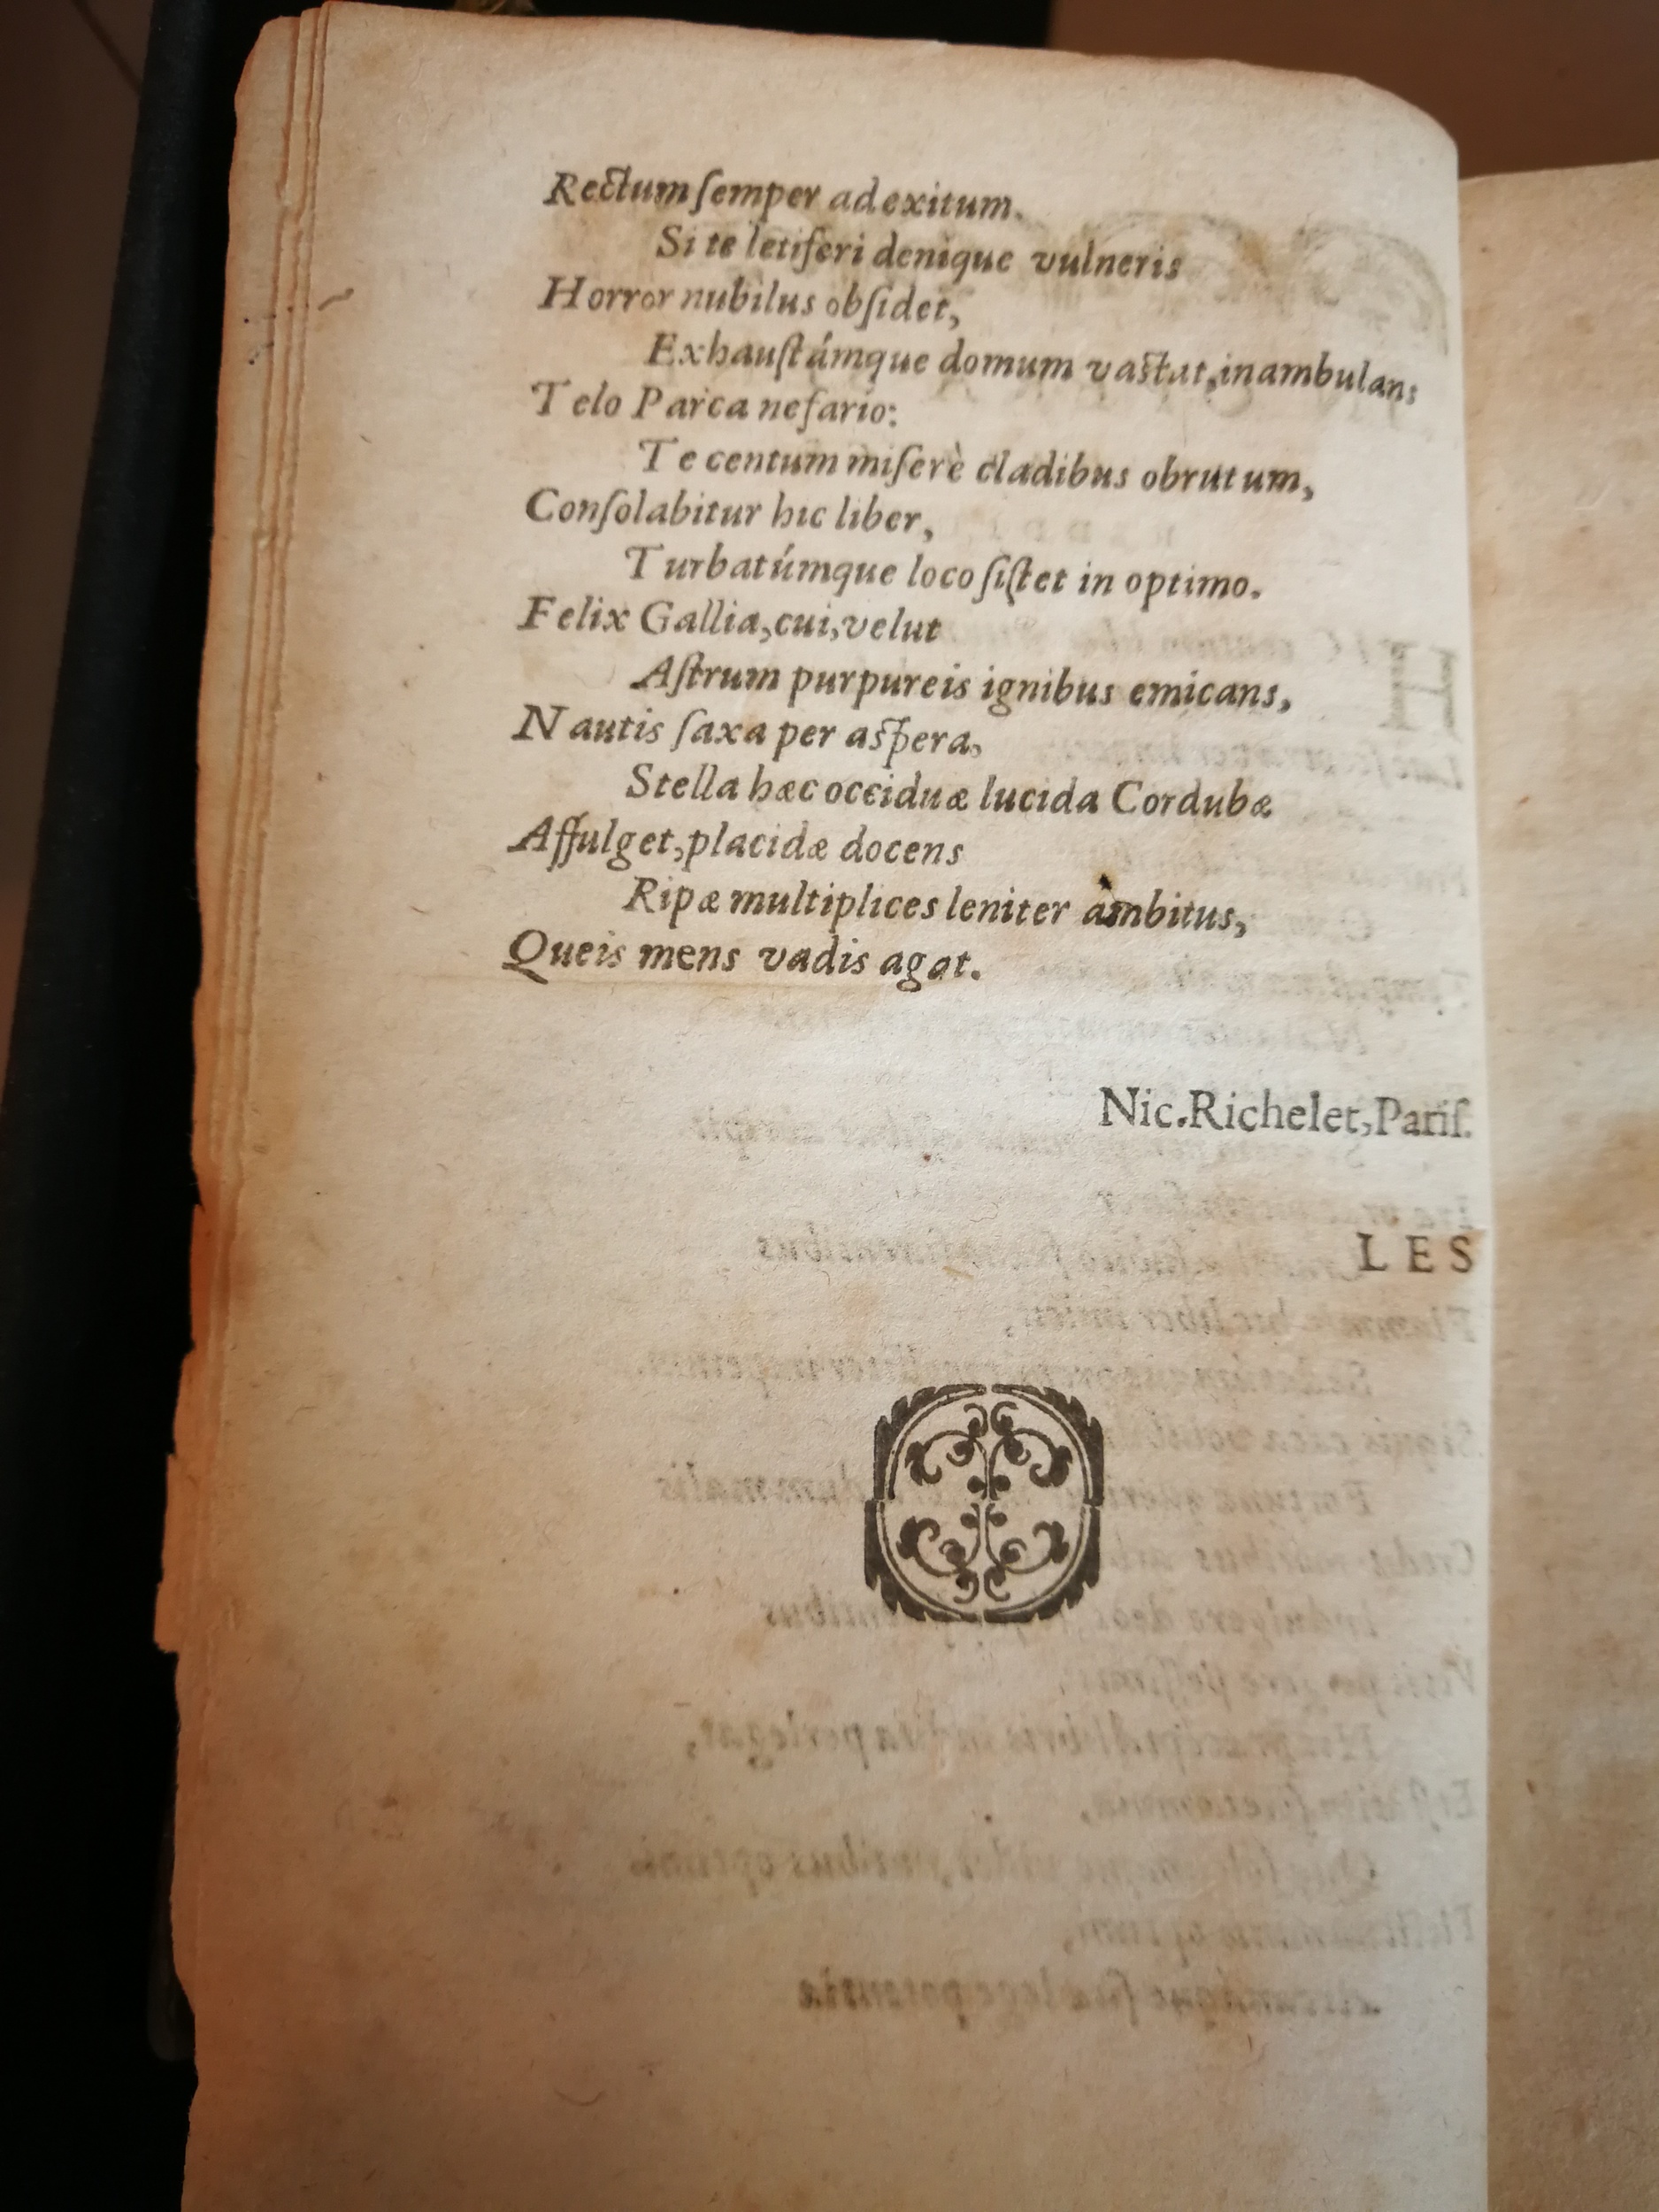 Rectum ſemper ad exitum.
Si te letiferi denique vulneris
Horror nubilus obſidet,
Exhauſtámque domum vaſtat, inambulans
Telo Parca nefario:
Te centum miſerè cladibus obrutum,
Conſolabitur hic liber,
Turbatúmque loco ſiſtet in optimo.
Felix Gallia, cui, velut
Aſtrum purpureis ignibus emicans,
Nautis ſaxa per aſpera,
Stella hæc occiduæ lucida Cordubæ
Affulget, placidæ docens
Ripæ multiplices leniter ambitus,
Queis mens vadis agat.
Nic. Richelet, Pariſ.
LES